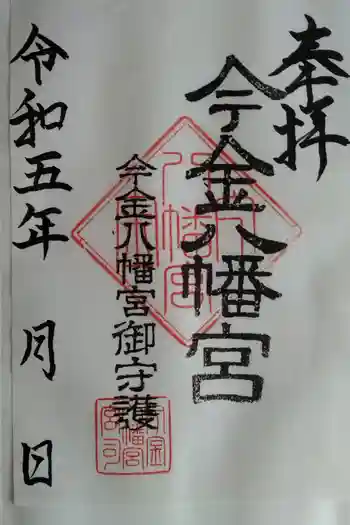 奉拝
今金八幡宮
今金八幡宮御守護
令和五年 月 日